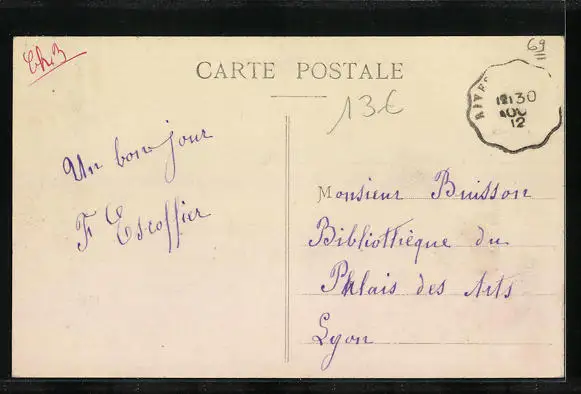 Ch.B
69
CARTE POSTALE
13€
RIVE
12 30
AOU
12
Un bonjour
F Escoffier
Monsieur Buisson
Bibliothèque du
Palais des Arts
Lyon